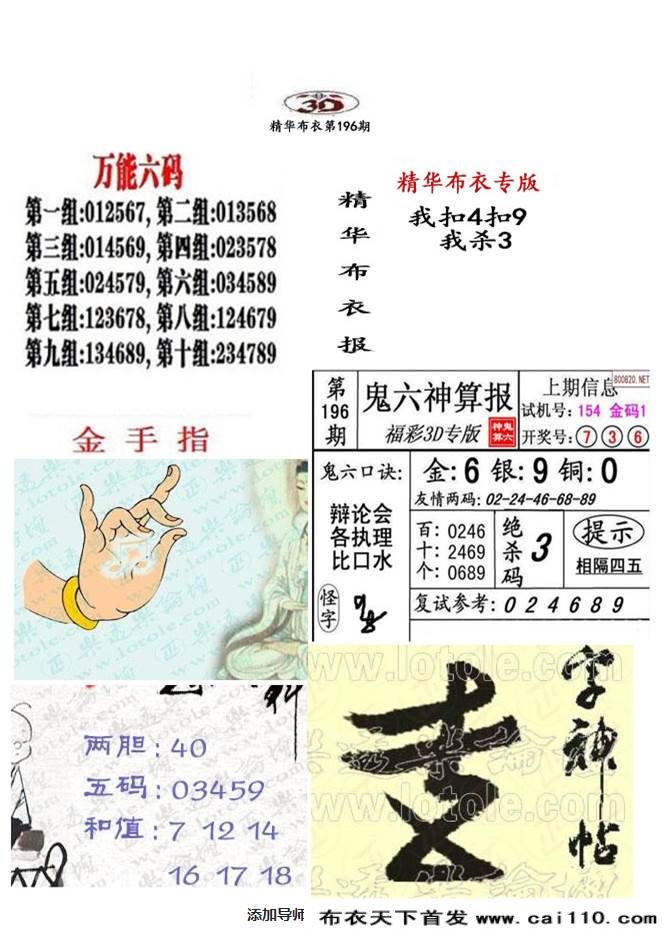 3D
精华布衣第196期
万能六码
第一组:012567, 第二组:013568
第三组:014569, 第四组:023578
第五组:024579, 第六组:034589
第七组:123678, 第八组:124679
第九组:134689, 第十组:234789
精华布衣报
精华布衣专版
我扣4扣9
我杀3
金手指
第196期
鬼六神算报
福彩3D专版
鬼六神算
上期信息
800820.NET
试机号: 154 金码1
开奖号: 7 3 6
鬼六口诀:
辩论会
各执理
比口水
怪字
金:6 银:9 铜:0
友情两码: 02-24-46-68-89
百: 0246
十: 2469
个: 0689
绝杀码 3
提示
相隔四五
复试参考: 0 2 4 6 8 9
两胆: 40
五码: 03459
和值: 7 12 14
16 17 18
字神帖
www.lotole.com
www.lotole.com
添加导师
布衣天下首发 www.cai110.com